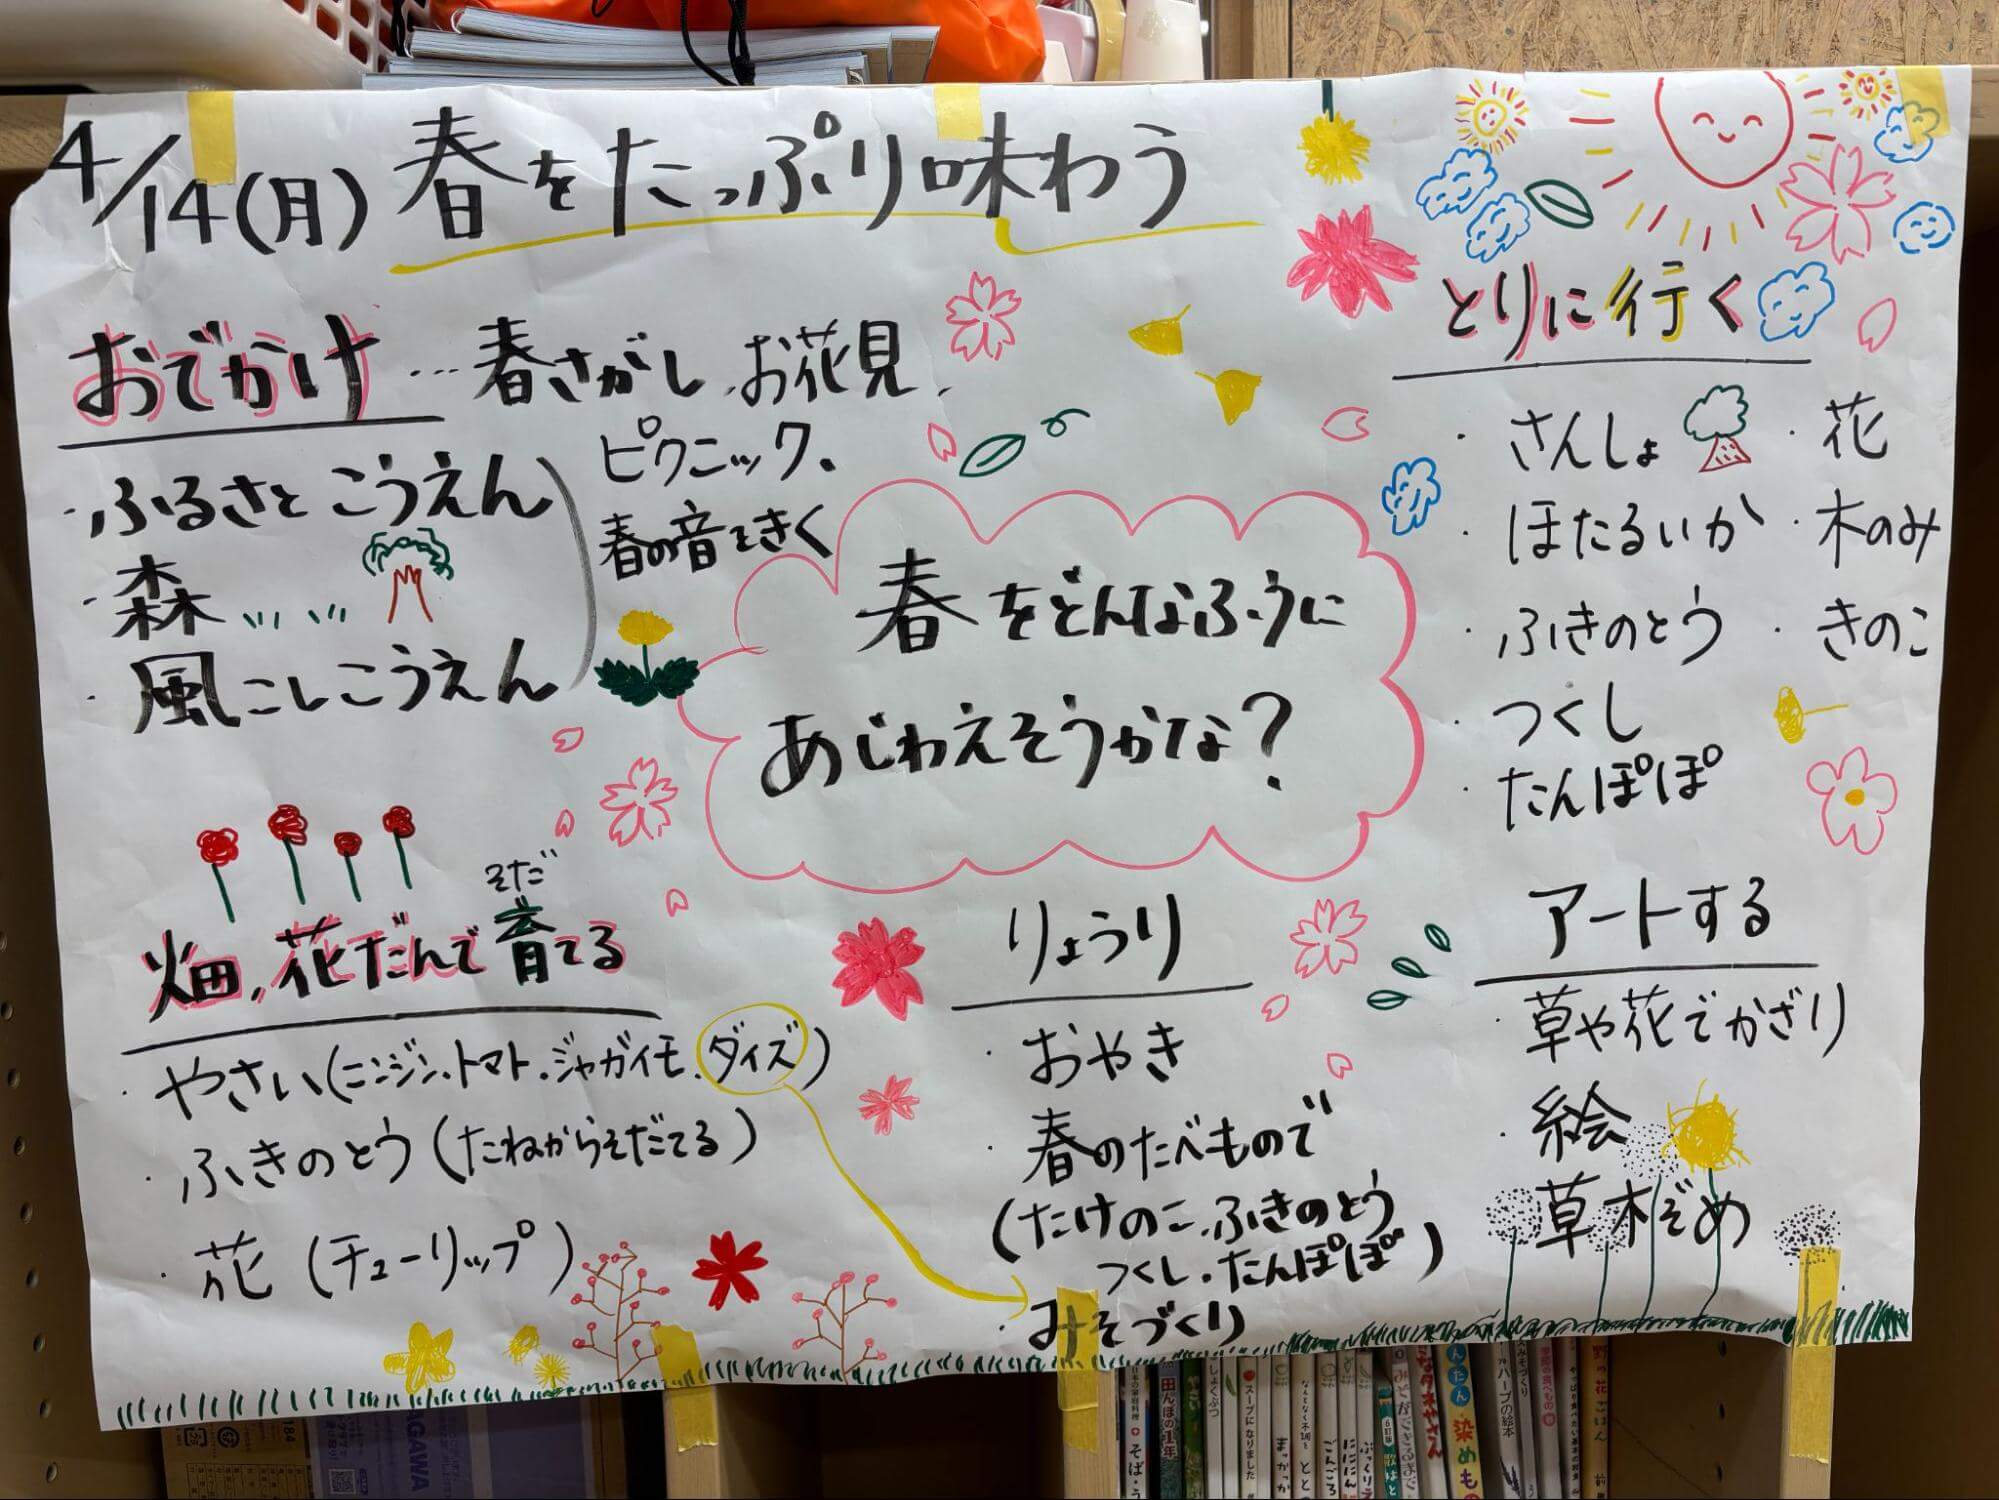 4/14(月) 春をたっぷり味わう
おでかけ…春さがし、お花見、
ピクニック、
春の音をきく
・ふるさとこうえん
・森
・風こしこうえん
春をどんなふうに
あじわえそうかな?
とりに行く
・さんしょ
・ほたるいか
・ふきのとう
・つくし
・たんぽぽ
・花
・木のみ
・きのこ
そだ
畑、花だんで育てる
・やさい(ニンジン、トマト、ジャガイモ、ダイズ)
・ふきのとう(たねからそだてる)
・花(チューリップ)
りょうり
・おやき
・春のたべもので
(たけのこ、ふきのとう
つくし、たんぽぽ)
・みそづくり
アートする
・草や花でかざり
・絵
・草木ぞめ
184
AGAWA
田んぼの1年
スープになりました
ハーブの絵本